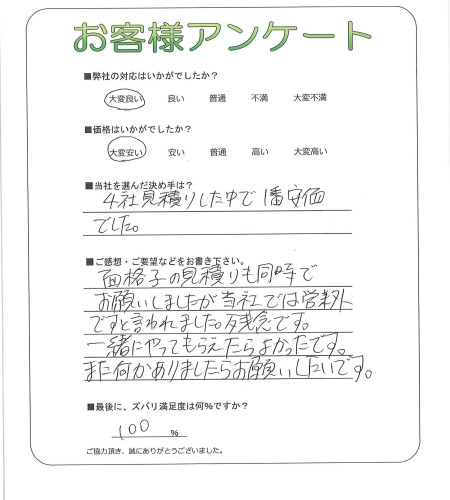 お客様アンケート
■弊社の対応はいかがでしたか?
大変良い 良い 普通 不満 大変不満
■価格はいかがでしたか?
大変安い 安い 普通 高い 大変高い
■当社を選んだ決め手は?
4社見積りした中で1番安価
でした。
■ご感想・ご要望などをお書き下さい。
面格子の見積りも同時で
お願いしましたが当社では営業外
ですと言われました。残念です。
一緒にやってもらえたらよかったです。
また何かありましたらお願いしたいです。
■最後に、ズバリ満足度は何%ですか?
100 %
ご協力頂き、誠にありがとうございました。